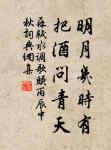 明月幾時有
把酒問青天
蘇軾水調歌頭丙辰中
秋詞典網集